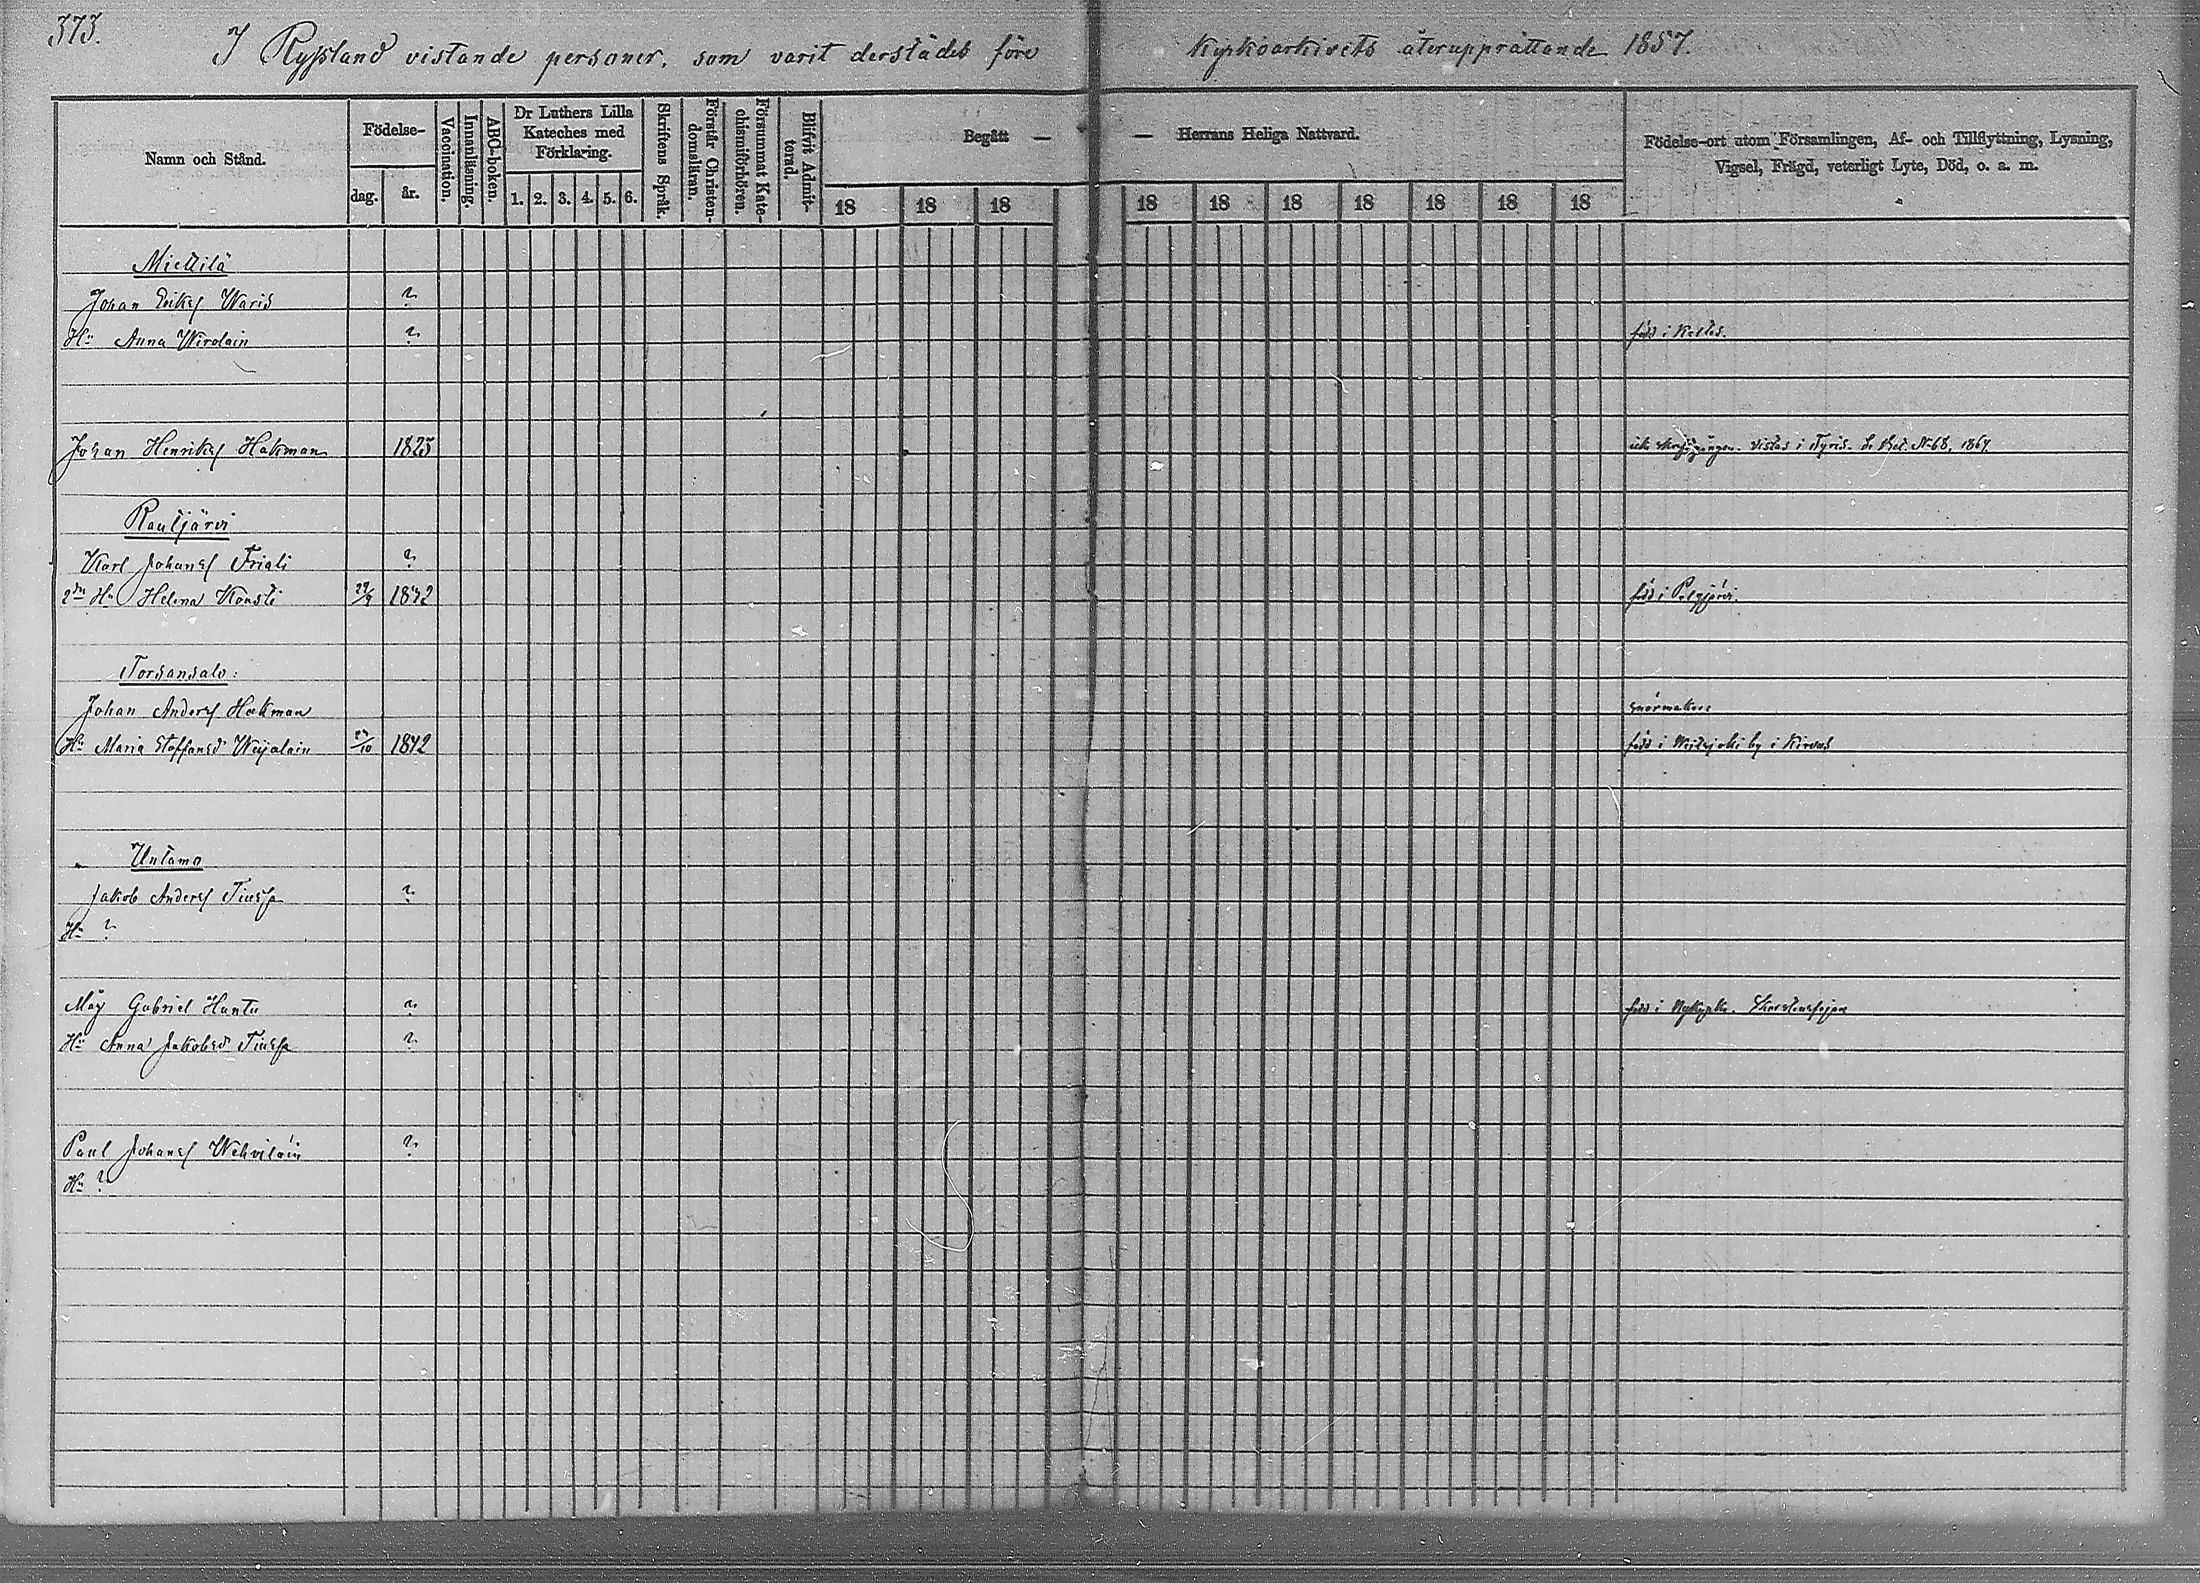 373.
I Ryssland vistande personer, som varit derstädes före kyrkoarkivets återupprättande 1857.
Namn och Stånd.
Födelse-
dag.
år.
Vaccination.
Innanläsning.
ABC-boken.
Dr Luthers Lilla
Kateches med
Förklaring.
1. 2. 3. 4. 5. 6.
Skriftens Språk.
Förstår Christen-
domsläran.
Försummat Kate-
chismiförhören.
Blifvit Admit-
terad.
Begått — — Herrans Heliga Nattvard.
18 18 18 18 18 18 18 18 18 18
Födelse-ort utom Församlingen, Af- och Tillflyttning, Lysning,
Vigsel, Frägd, veterligt Lyte, Död, o. a. m.
Miettilä
Johan Eriksf Waris ?
Hu Anna Wirolain ? född i
Johan Henriksf Hakman 1823 vistas i Tyris. No 68, 1867.
Rautjärvi
Karl Johansf Friali ?
2dra Hu Helena Könsti 29/9 1842 född i Pelgjärvi.
Torsansalo:
Johan Andersf Hakman
Hu Maria Staffansd Weijalain 27/10 1842 född i by i Kirvus
Untamo
Jakob Andersf Tiussa ?
Hu ?
Måg Gabriel Hantu ? född i Nykyrka.
Hu Anna Jakobsd Tiussa ?
Paul Johansf Wehviläin ?
Hu ?